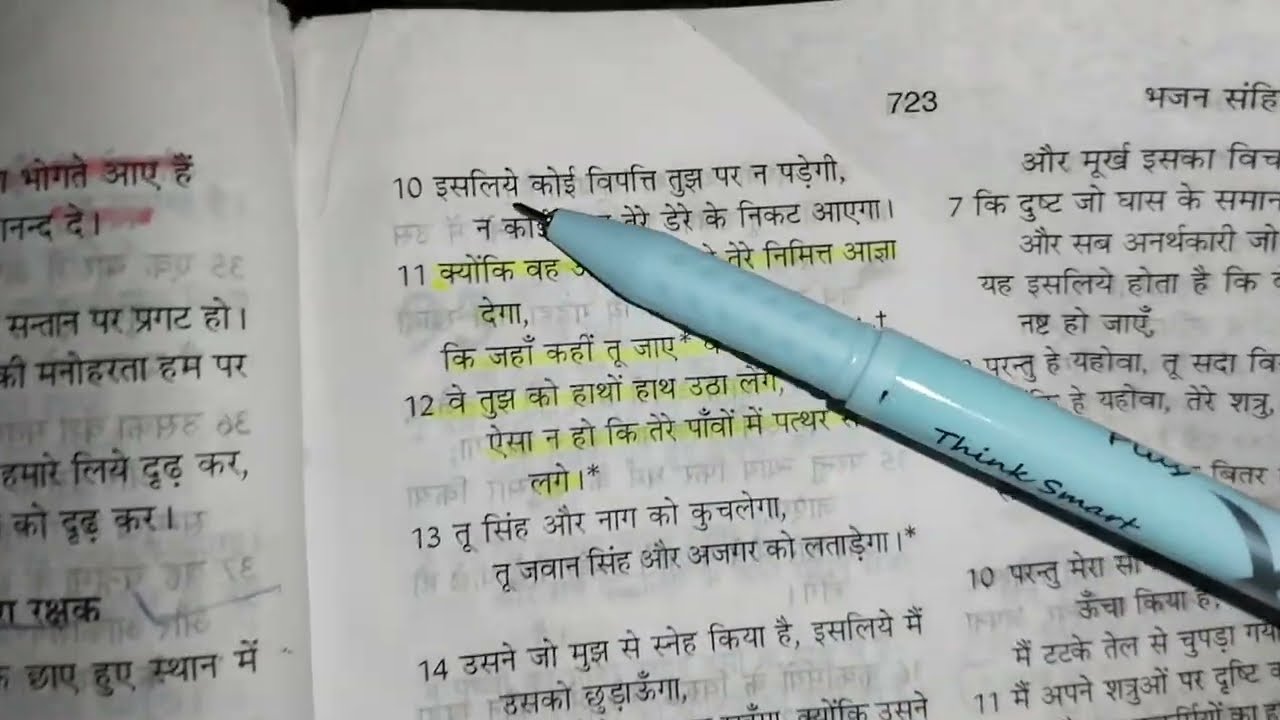 723
भजन संहि
भोगते आए हैं
दे।
सन्तान पर प्रगट हो।
की मनोहरता हम पर
हमारे लिये दृढ़ कर,
को दृढ़ कर।
रक्षक
छाए हुए स्थान में
10 इसलिये कोई विपत्ति तुझ पर न पड़ेगी,
न तेरे डेरे के निकट आएगा।
11 क्योंकि वह तेरे निमित्त आज्ञा
देगा,
कि जहाँ कहीं तू जाए*
†
12 वे तुझ को हाथों हाथ उठा लेंगे,
ऐसा न हो कि तेरे पाँवों में पत्थर
लगे।*
13 तू सिंह और नाग को कुचलेगा,
तू जवान सिंह और अजगर को लताड़ेगा।*
14 उसने जो मुझ से स्नेह किया है, इसलिये मैं
उसको छुड़ाऊँगा,
क्योंकि उसने
और मूर्ख इसका विच
7 कि दुष्ट जो घास के समान
और सब अनर्थकारी जो
यह इसलिये होता है कि
नष्ट हो जाएँ,
परन्तु हे यहोवा, तू सदा वि
हे यहोवा, तेरे शत्रु,
बितर
10 परन्तु मेरा
ऊँचा किया है,
मैं टटके तेल से चुपड़ा गया
11 मैं अपने शत्रुओं पर दृष्टि
Think Smart
Plus